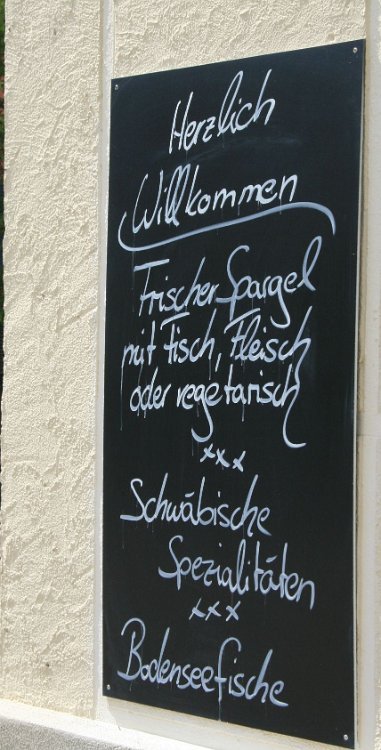 Herzlich
Willkommen
Frischer Spargel
mit Fisch, Fleisch
oder vegetarisch
xxx
Schwäbische
Spezialitäten
xxx
Bodenseefische